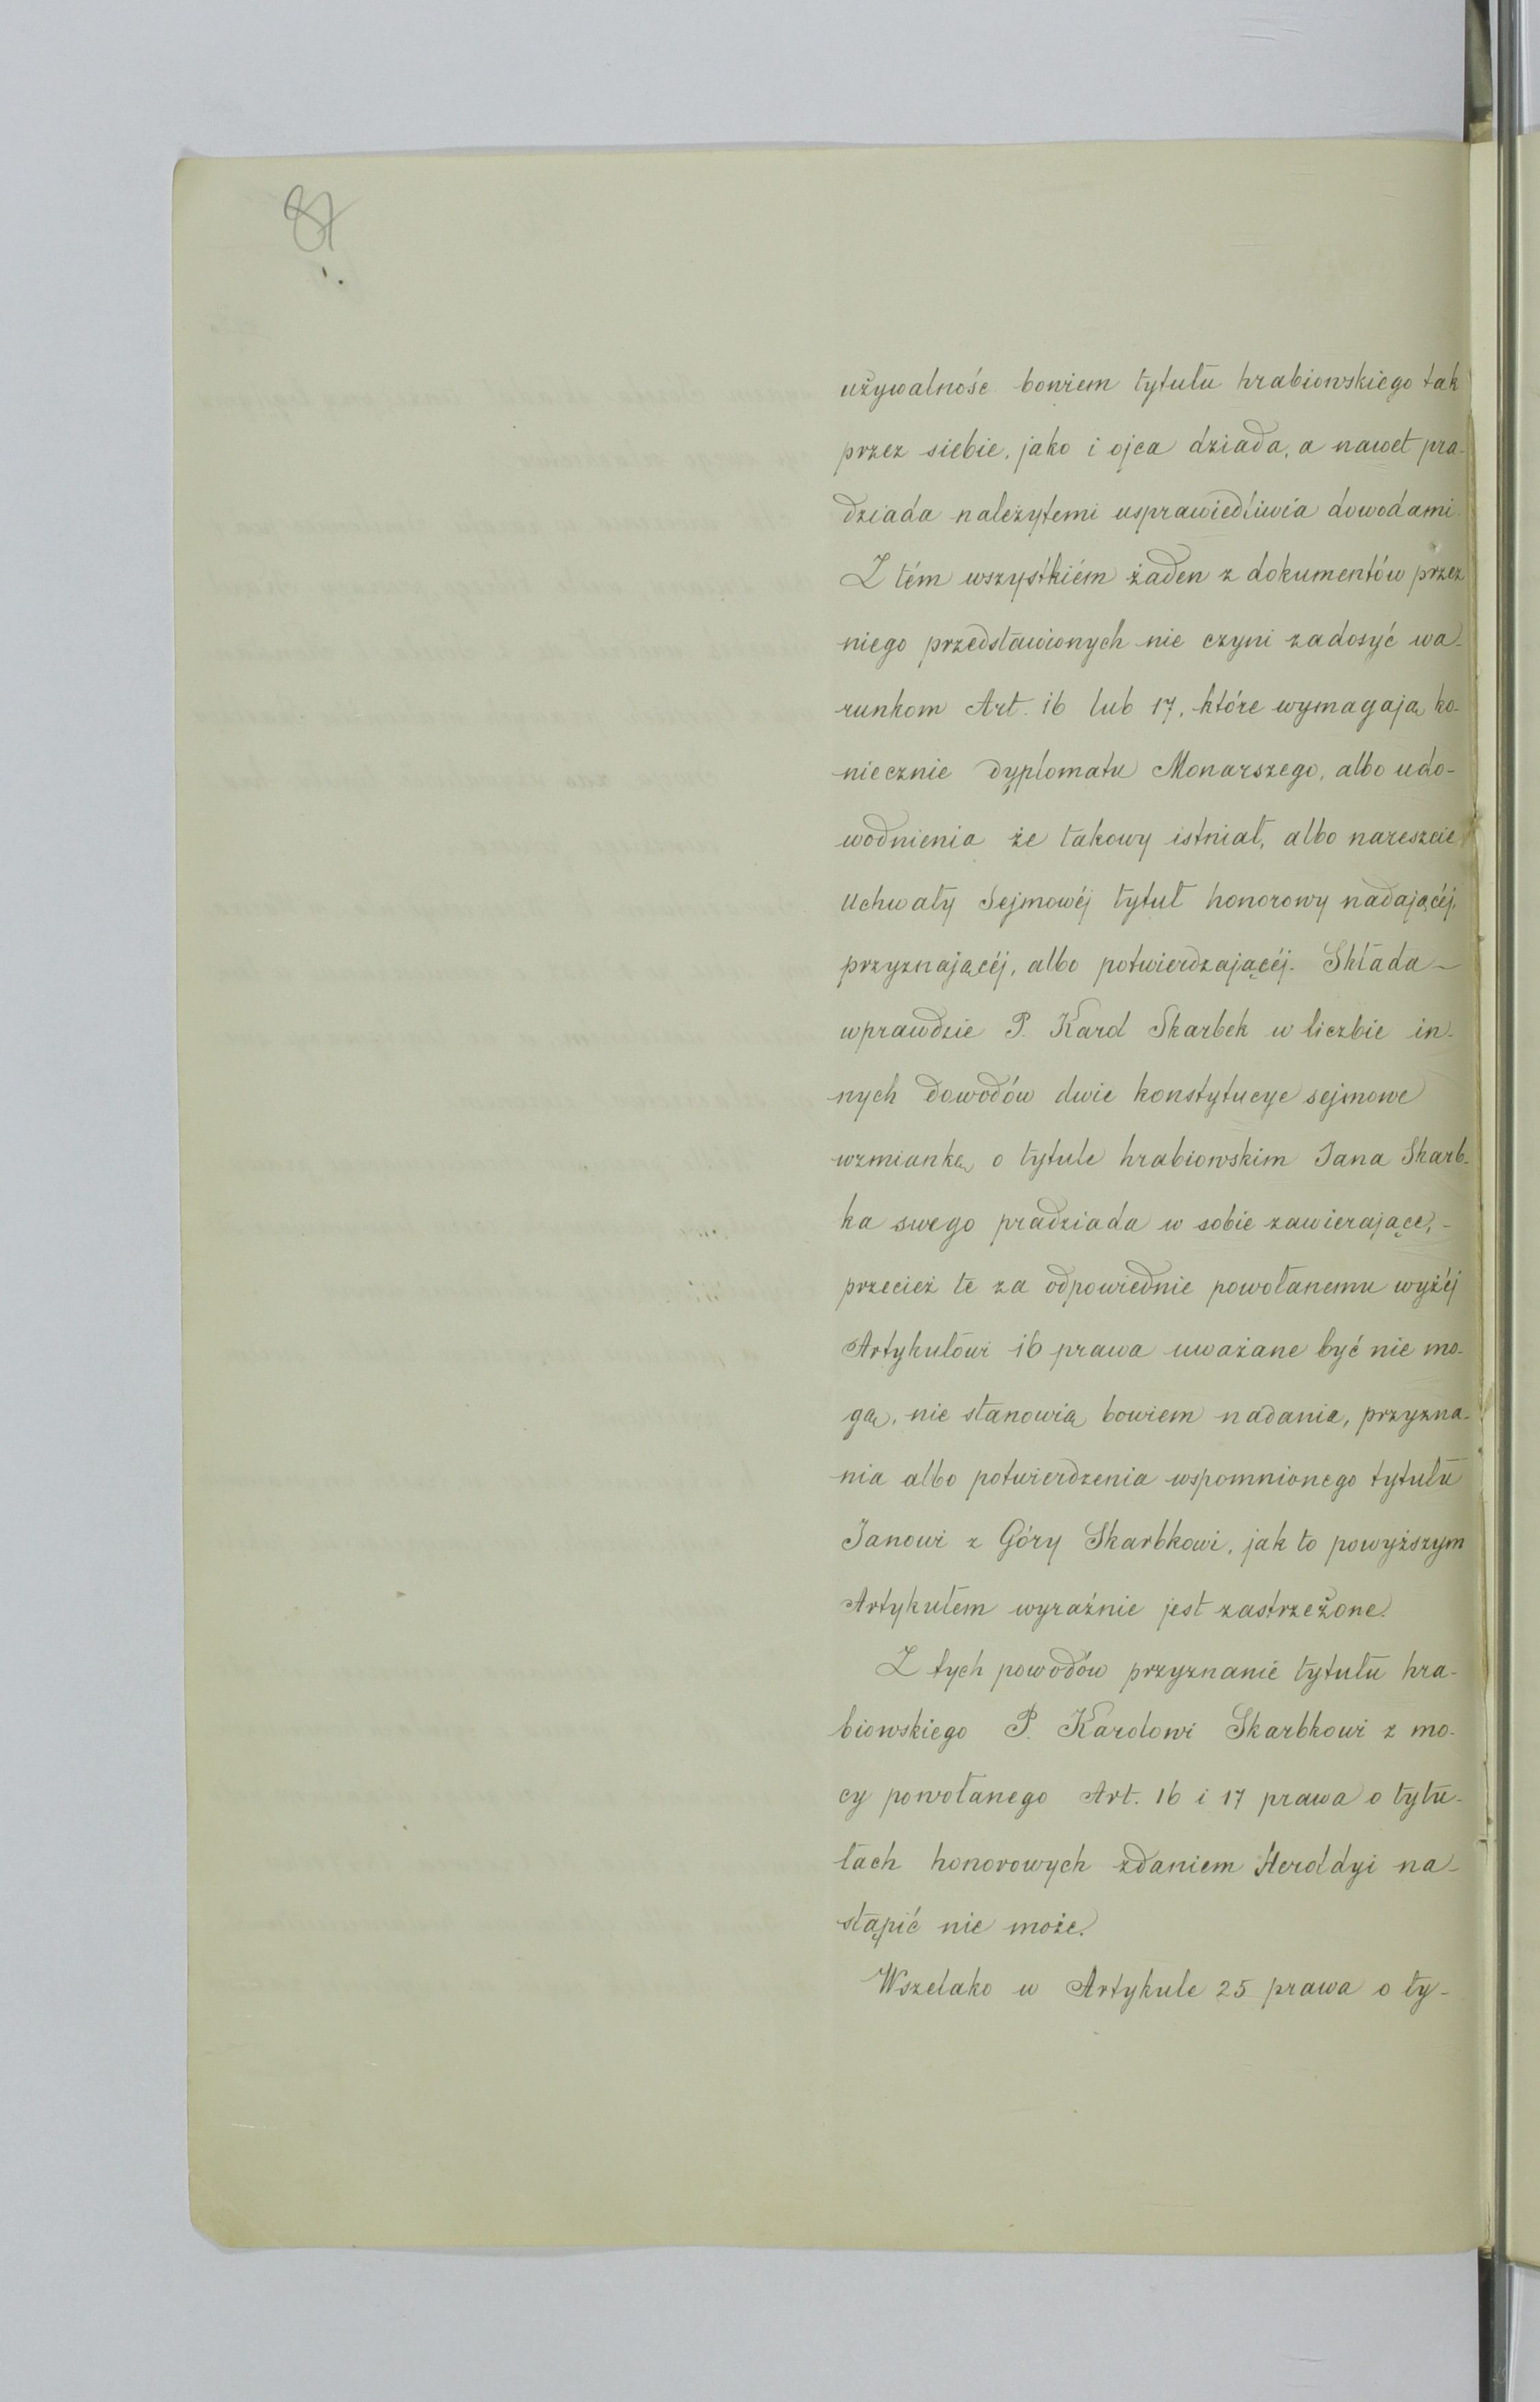 87
używalność bowiem tytułu hrabiowskiego tak
przez siebie, jako i ojca dziada, a nawet pra-
dziada należytemi usprawiedliwia dowodami.
Z tém wszystkiém żaden z dokumentów przez
niego przedstawionych nie czyni zadosyć wa-
runkom Art. 16 lub 17, które wymagają ko-
niecznie dyplomatu Monarszego, albo udo-
wodnienia że takowy istniał, albo nareszcie
Uchwały Sejmowéj tytuł honorowy nadającéj,
przyznającéj, albo potwierdzającéj. Składa –
wprawdzie P. Karol Skarbek w liczbie in-
nych dowodów dwie konstytucye sejmowe
wzmiankę o tytule hrabiowskim Jana Skarb-
ka swego pradziada w sobie zawierające, –
przecież te za odpowiednie powołanemu wyżéj
Artykułowi 16 prawa uważane być nie mo-
gą, nie stanowią bowiem nadania, przyzna-
nia albo potwierdzenia wspomnionego tytułu
Janowi z Góry Skarbkowi, jak to powyższym
Artykułem wyraźnie jest zastrzeżone.
Z tych powodów przyznanie tytułu hra-
biowskiego P. Karolowi Skarbkowi z mo-
cy powołanego Art. 16 i 17 prawa o tytu-
łach honorowych zdaniem Heroldyi na-
stąpić nie może.
Wszelako w Artykule 25 prawa o ty-